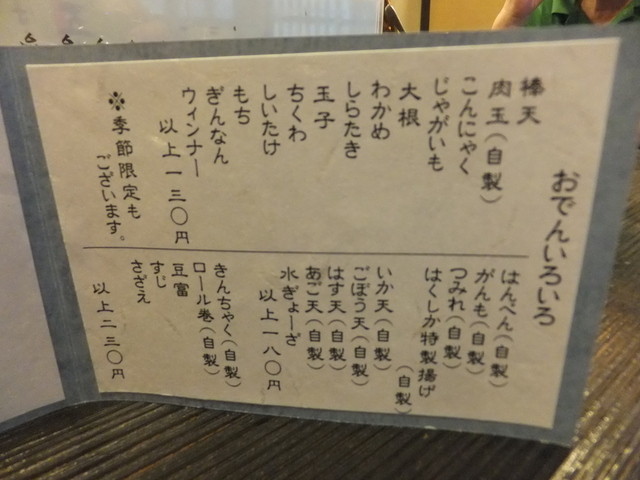 おでんいろいろ
棒天
肉玉(自製)
こんにゃく
じゃがいも
大根
わかめ
しらたき
玉子
ちくわ
しいたけ
もち
ぎんなん
ウィンナー
以上一三〇円
※季節限定も
ございます。
はんぺん(自製)
がんも(自製)
つみれ(自製)
はくしか特製揚げ
(自製)
いか天(自製)
ごぼう天(自製)
はす天(自製)
あご天(自製)
水ぎょーざ
以上一八〇円
きんちゃく(自製)
ロール巻(自製)
豆富
すじ
さざえ
以上二三〇円